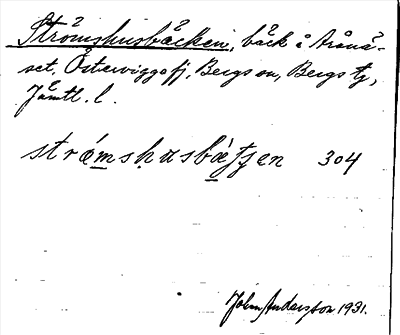 Strömshusbäcken, bäck i Arånä-
set, Östervigge fj, Bergs sn, Bergs tg,
Jämtl. l.
strǿmshusbätjen 304
John Andersson 1931.